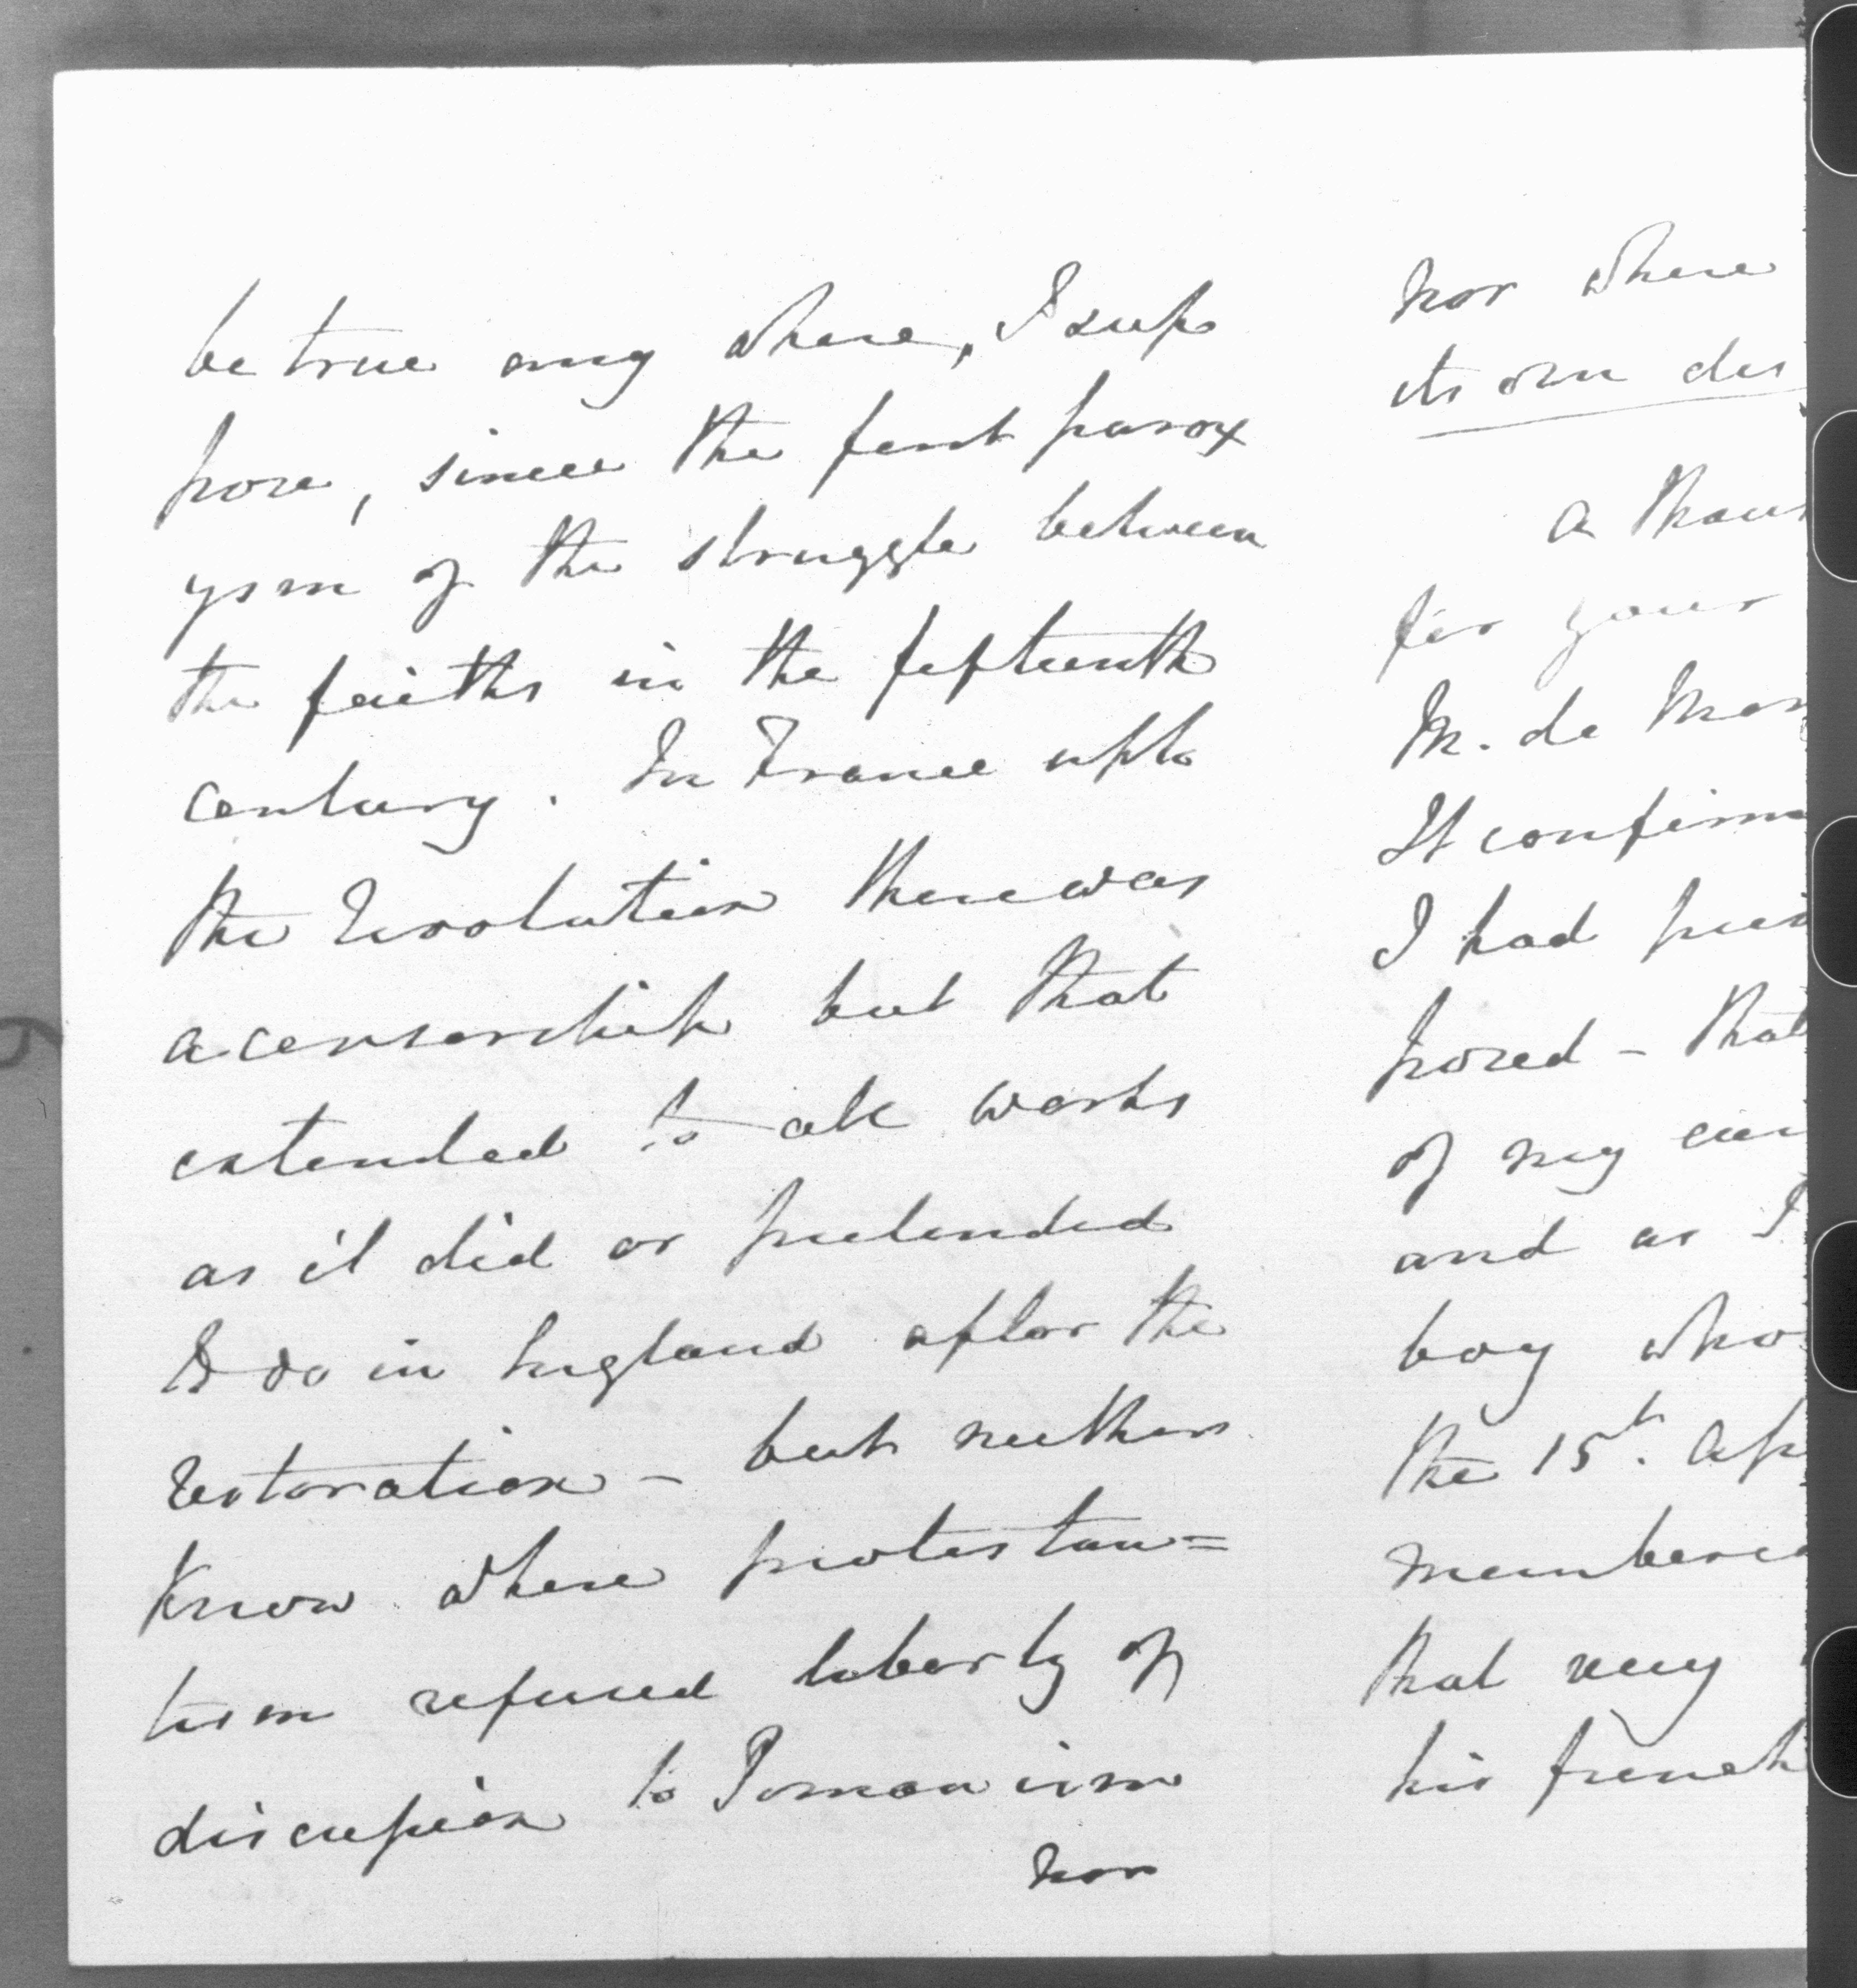 be true any where, I sup
pose, since the first parox
ysm of the struggle between
the faiths in the fifteenth
century. In France up to
the Revolution there was
a censorship but that
extended to all works
as it did or pretended
to do in England after the
restoration - but neither
know where protestan=
tism refused liberty of
discussion to Romanism
nor
nor where
its own dis
a thous
for your
M. de Mon
It confirm
I had
posed - that
of my
and as I
boy who
the 15th. Ap
membere
that very
his french